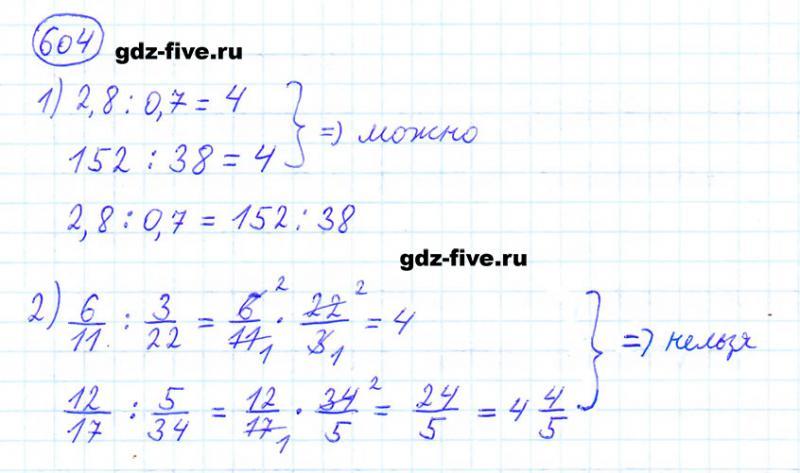 604
gdz-five.ru
1) 2,8 : 0,7 = 4
152 : 38 = 4 } => можно
2,8 : 0,7 = 152 : 38
gdz-five.ru
2) 6/11 : 3/22 = 6²/11₁ · 22²/3₁ = 4
12/17 : 5/34 = 12/17₁ · 34²/5 = 24/5 = 4 4/5. } => нельзя